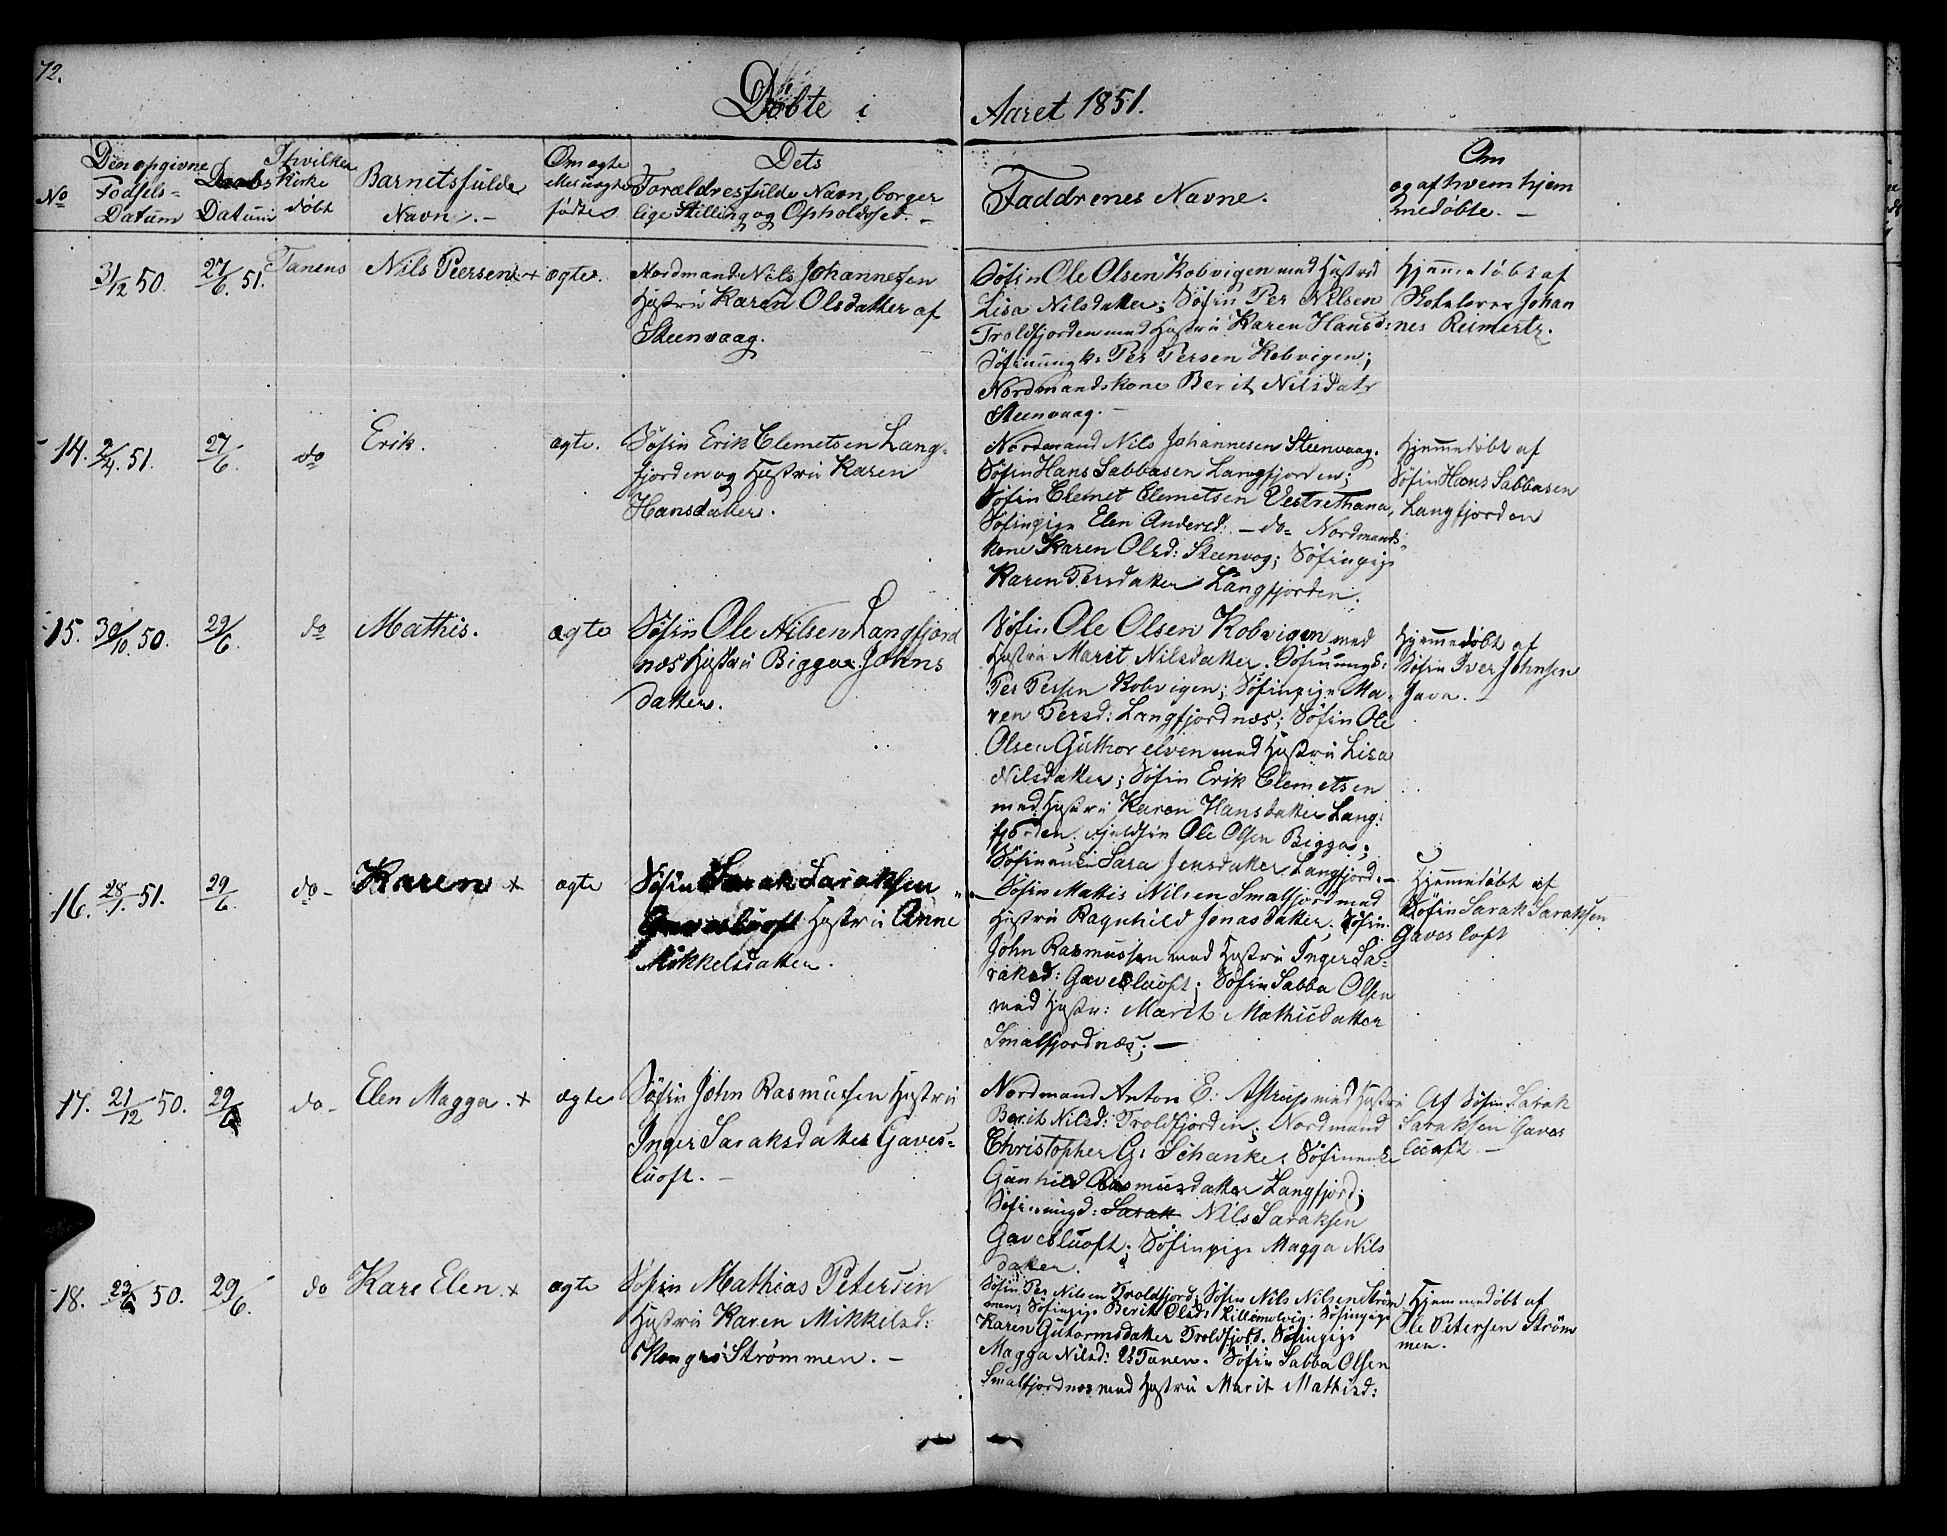 72.
Døbte i Aaret 1851.
No
Den opgivne Fødsels-Datum
Daabs Datum
I hvilken Kirke døbt
Barnets fulde Navn. -
Om ægte eller uægte født
Dets Forældres fulde Navn, borgerlige Stilling og Opholdssted. -
Faddrenes Navne.
Om og af hvem hjemmedøbte. -
31/12 50. 27/6. 51. Tanens Nils Peersen + ægte.
Nordmand Nils Johannesen
Hustru Karen Olsdatter af
Steenvaag.
Søfin Ole Olsen Kobvigen med Hustru
Lisa Nilsdatter; Søfin Per Nilsen
Troldfjorden med Hustru Karen Hansd:
Søfinungk: Per Persen Kobvigen;
Nordmandskone Berit Nilsdatr
Steenvaag. -
Hjemmedøbt af
Skolelærer Johan
nes Reimertz.
14. 2/4. 51. 27/6. do Erik. ægte.
Søfin Erik Clemetsen Lang-
fjorden og Hustru Karen
Hansdatter.
Nordmand Nils Johannesen Steenvaag.
Søfin Hans Sabbasen Langfjorden;
Søfin Clemet Clemetsen Vestrethana,
Søfinpige Elen Andersd. - do - Nordmands-
kone Karen Olsd: Steenvog; Søfinpige
Karen Persdatter Langfjorden.
Hjemmedøbt af
Søfin Hans Sabbasen
Langfjorden
15. 30/10. 50. 29/6. do Mathis. ægte
Søfin Ole Nilsen Langfjord
næs Hustru Bigga Johns
datter.
Søfin Ole Olsen Kobvigen med
Hustru Marit Nilsdatter. Søfinungk:
Per Persen Kobvigen; Søfinpige Ma-
ren Persd: Langfjordnæs; Søfin Ole
Olsen Guthorelven med Hustru Lisa
Nilsdatter; Søfin Erik Clemetsen
med Hustru Karen Hansdatter Lang-
fjorden. Fjeldfin Ole Olsen Bigga;
Søfinenke Sara Jensdatter Langfjord. -
Hjemmedøbt af
Søfin Iver Johnsen
Java. -
16. 28/1. 51. 29/6. do - Karen + ægte
Søfin Sarak Saraksen
Gavesluoft Hustru Anne
Mikkelsdatter.
Søfin Mathis Nilsen Smalfjord med
Hustru Ragnhild Jonasdatter. Søfin
John Rasmussen med Hustru Inger Sa-
raksd: Gavesluoft; Søfin Sabba Olsen
med Hustr: Marit Mathisdatter
Smalfjordnæs; -
Hjemmedøbt af
Søfin Sarak Saraksen
Gavesloft
17. 21/12 50. 29/6 do - Elen Magga. + ægte
Søfin John Rasmussen Hustru
Inger Saraksdatter Gaves-
luoft. -
Nordmand Anton E: Astrup med Hustru
Berit Nilsd: Troldfjorden; Nordmand
Christopher G: Schanke. Søfinenke
Gunhild Rasmusdatter Langfjord;
Søfinungd: Sarak Nils Saraksen
Gavesluoft; Søfinpige Magga Nils
datter.
Af Søfin Sarak
Saraksen Gaves
luoft -
18. 23/6 50. 29/6. do Kare Elen. + ægte
Søfin Mathias Petersen
Hustru Karen Mikkelsd:
Strømmen. -
Søfin Per Nilsen Troldfjord; Søfin Nils Nilsen Strøm
men; Søfinpige Berit Olsd: Lillemolvig. Søfinpige
Karen Gutormsdatter Troldfjord. Søfinpige
Magga Nilsd: Tanen. Søfin Sabba Olsen
Smalfjordnæs med Hustru Marit Mathisd:
Hjemmedøbt af
Ole Petersen Strøm
men.